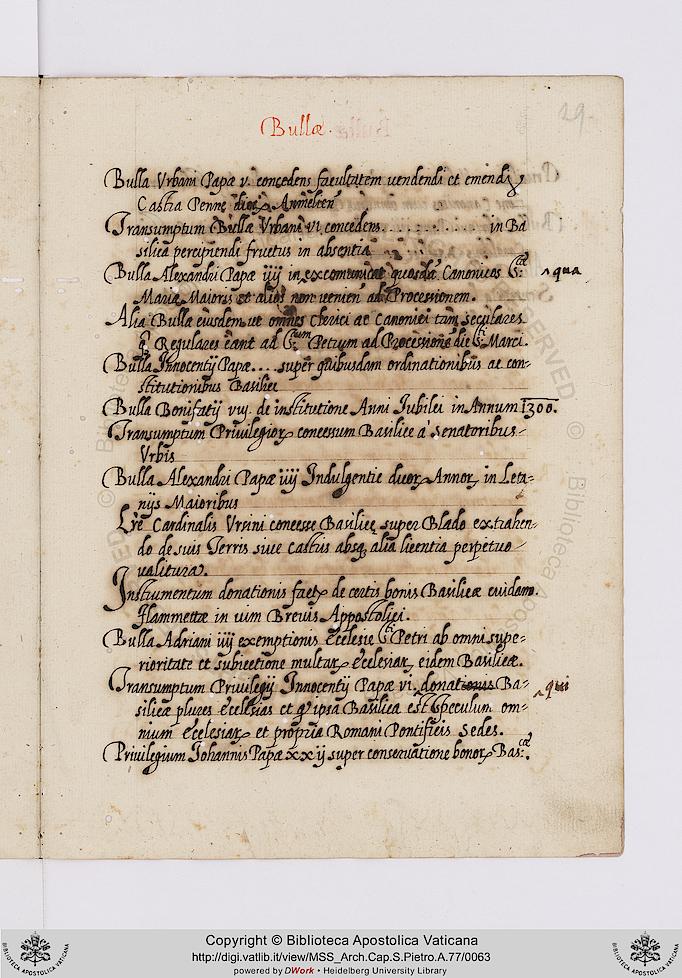 29.
Bullæ.
Bulla Urbani Papæ v. concedens facultatem uendendi et emendi
Castra Penne
Transumptum Bullæ Urbani vi concedens............ in Ba
silica percipiendi fructus in absentia
Bulla Alexandri Papæ iiij in excomunicat quosdã Canonicos S:^cæ ^ qua
Mariæ Maioris et alios non venien ad Processionem.
Alia Bulla eiusdem ut omnes Clerici ac Canonici tam seculares
q̃ Regulares eant ad S:^um Petrum ad Processione die S:^ti Marci.
Bulla Innocentij Papæ.... super quibusdam ordinationibus ac con-
stitutionibus Basilice
Bulla Bonifatij viij. de institutione Anni Iubilei in Annum 1300.
Transumptum Privilegior concessum Basilice à Senatoribus
Vrbis
Bulla Alexandri Papæ iiij Indulgentie duor Annor in Leta-
nijs Maioribus
Lre Cardinalis Vrsini concesse Basilice super Blado extrahen-
do de suis Terris siue Castris absq alia licentia perpetuo
ualitura.
Instrumentum donationis fact de certis bonis Basilicæ cuidam.
Flammettæ in uim Breuis Appostolici.
Bulla Adriani iiij exemptionis Ecclesie S:^ti Petri ab omni supe-
rioritate et subiectione multar ecclesiar eidem Basilicæ.
Transumptum Privilegij Innocentij Papæ vi. donationis Ba- ^ qui
silicæ plures ecclesias et q ipsa Basilica est speculum om-
nium Ecclesiar et propria Romani Pontificis sedes.
Privilegium Iohannis Papæ xxij super conseruatione bonor Bas:^cæ.
Copyright © Biblioteca Apostolica Vaticana
http://digi.vatlib.it/view/MSS_Arch.Cap.S.Pietro.A.77/0063
powered by DWork • Heidelberg University Library